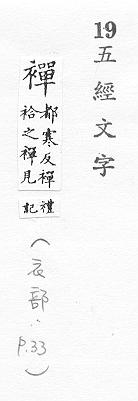 19 五經文字
襌
都寒反襌
袷之襌見
禮記
(衣部. p.33)